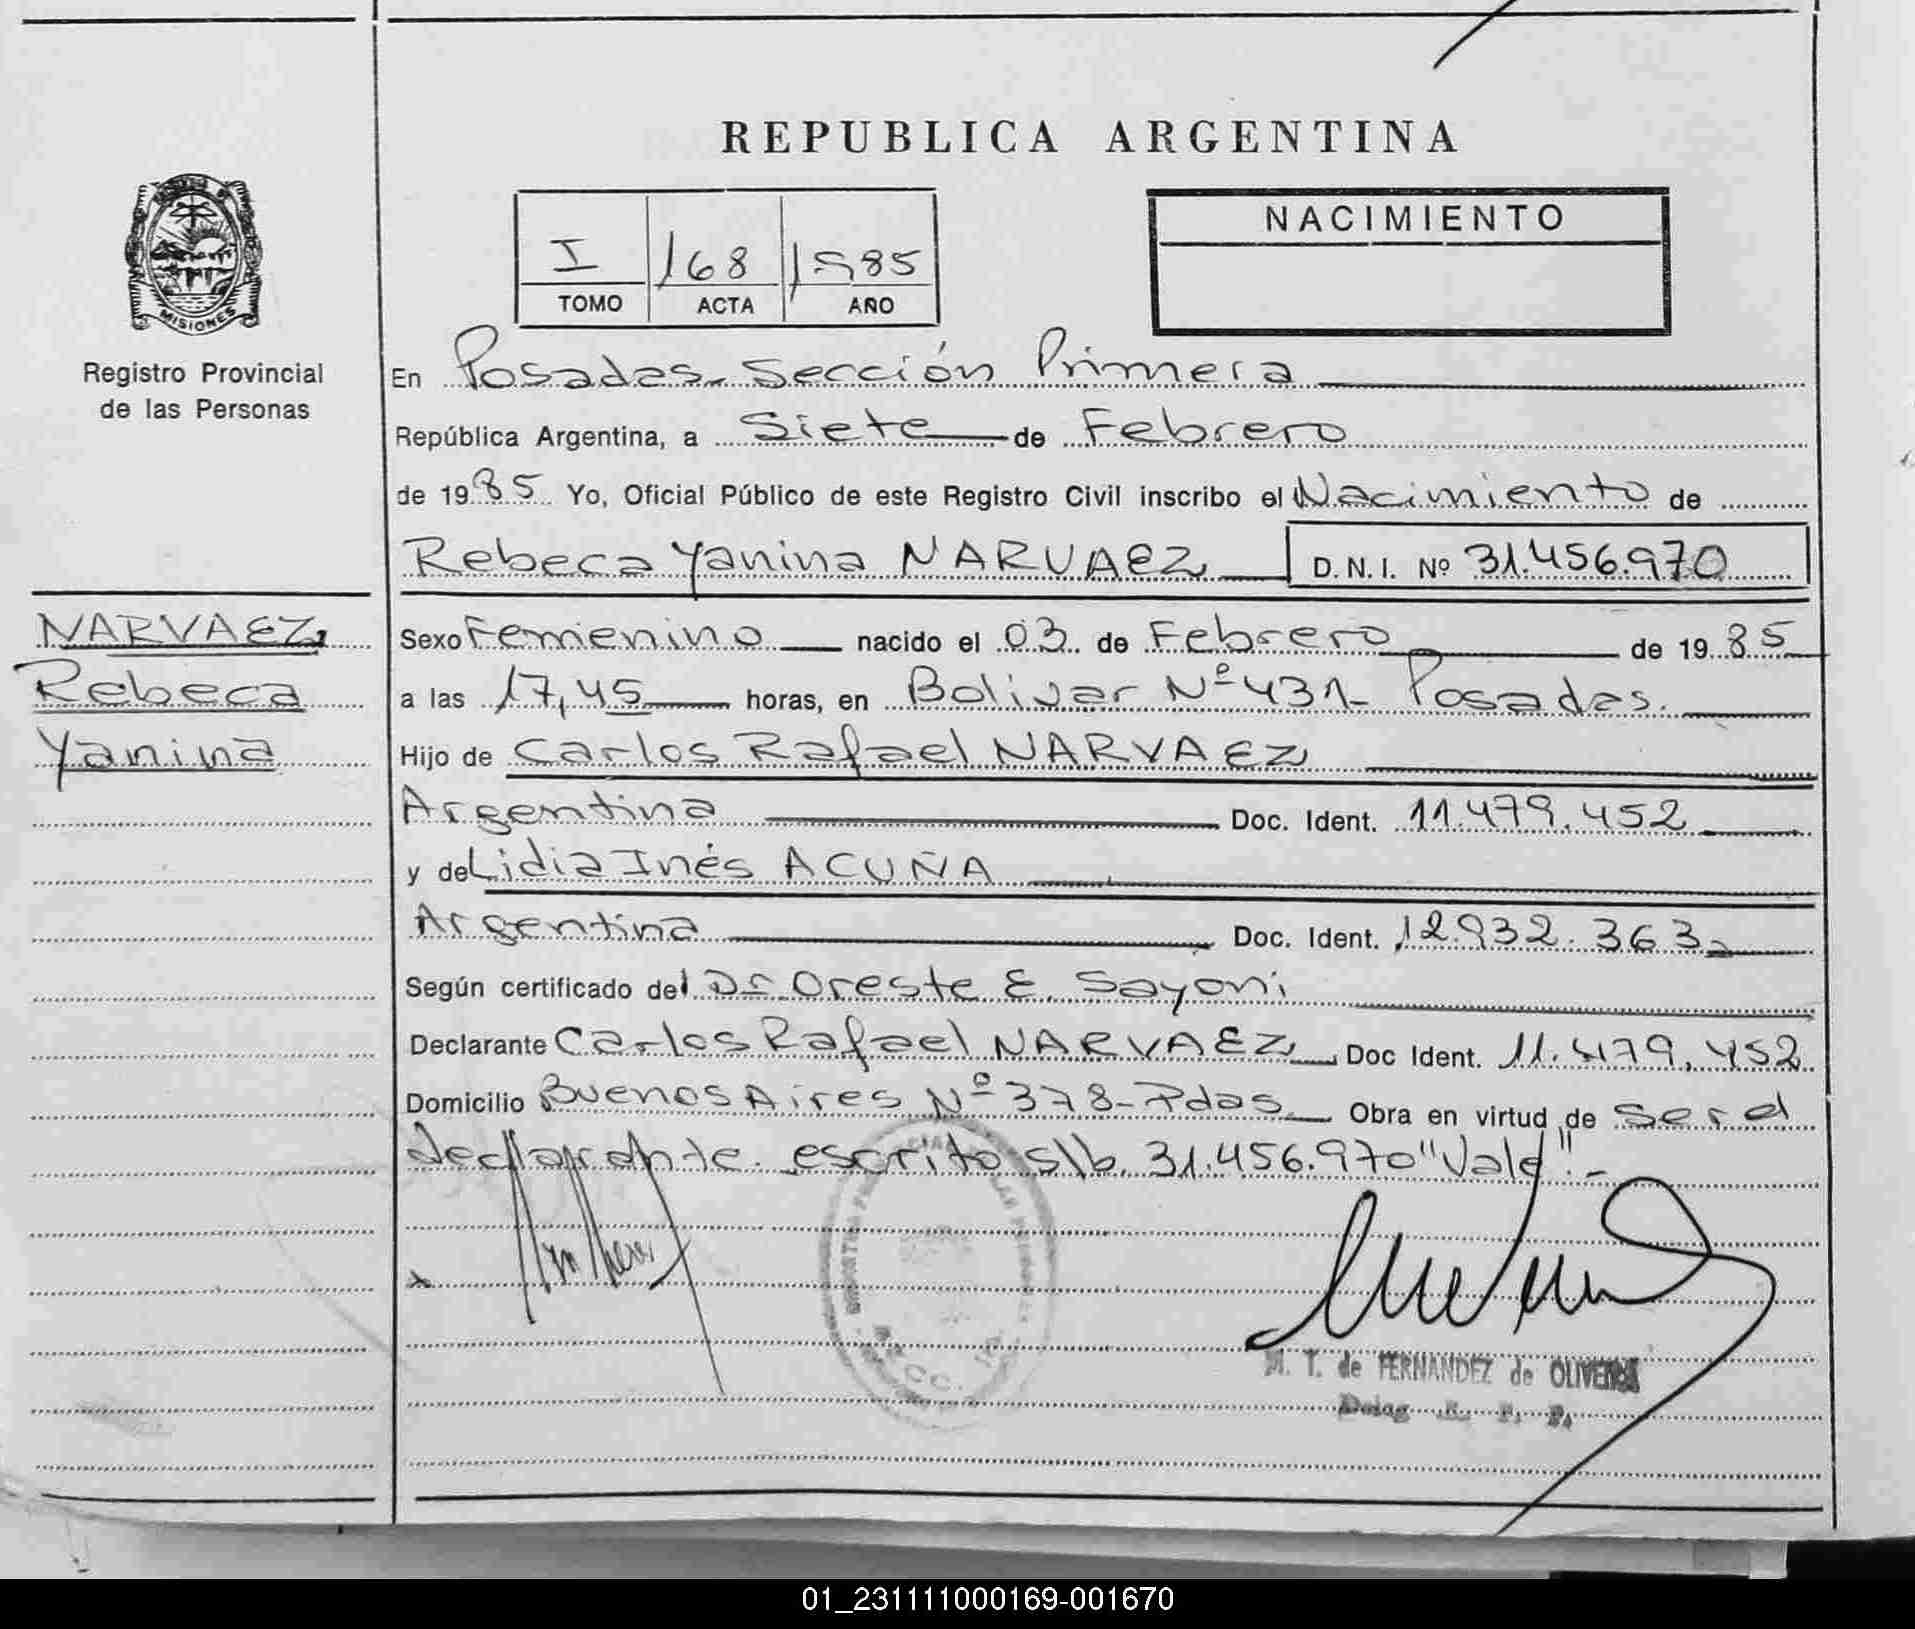 REPUBLICA ARGENTINA
I 168 1985
TOMO ACTA AÑO
NACIMIENTO
MISIONES
Registro Provincial
de las Personas
En Posadas - Sección Primera
República Argentina, a Siete de Febrero
de 1985 Yo, Oficial Público de este Registro Civil inscribo el Nacimiento de
Rebeca Yanina NARVAEZ D.N.I. Nº 31.456.970
NARVAEZ,
Rebeca
Yanina
Sexo Femenino nacido el 03 de Febrero de 1985
a las 17,45 horas, en Bolivar Nº 431 - Posadas.
Hijo de Carlos Rafael NARVAEZ
Argentina Doc. Ident. 11.479.452
y de Lidia Inés ACUÑA
Argentina Doc. Ident. 12.932.363
Según certificado del Dr Oreste E. Sayoni
Declarante Carlos Rafael NARVAEZ Doc Ident. 11.479.452
Domicilio Buenos Aires Nº 378 - Pdas. Obra en virtud de ser el
declarante. escrito s/b. 31.456.970 "Vale". -
M. T. de FERNANDEZ de OLIVEIRA
Deleg. R. P. P.
01_231111000169-001670